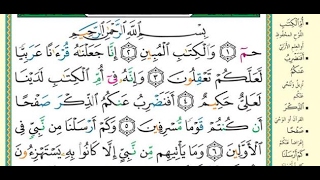 بِسْمِ ٱللَّهِ ٱلرَّحْمَٰنِ ٱلرَّحِيمِ
حمٓ ١ وَٱلْكِتَٰبِ ٱلْمُبِينِ ٢ إِنَّا جَعَلْنَٰهُ قُرْءَٰنًا عَرَبِيًّا
لَّعَلَّكُمْ تَعْقِلُونَ ٣ وَإِنَّهُۥ فِىٓ أُمِّ ٱلْكِتَٰبِ لَدَيْنَا
لَعَلِىٌّ حَكِيمٌ ٤ أَفَنَضْرِبُ عَنكُمُ ٱلذِّكْرَ صَفْحًا
أَن كُنتُمْ قَوْمًا مُّسْرِفِينَ ٥ وَكَمْ أَرْسَلْنَا مِن نَّبِىٍّ فِى
ٱلْأَوَّلِينَ ٦ وَمَا يَأْتِيهِم مِّن نَّبِىٍّ إِلَّا كَانُوا۟ بِهِۦ يَسْتَهْزِءُونَ
أُمِّ ٱلْكِتَٰبِ
أَفَنَضْرِبُ
عَنكُمُ
صَفْحًا